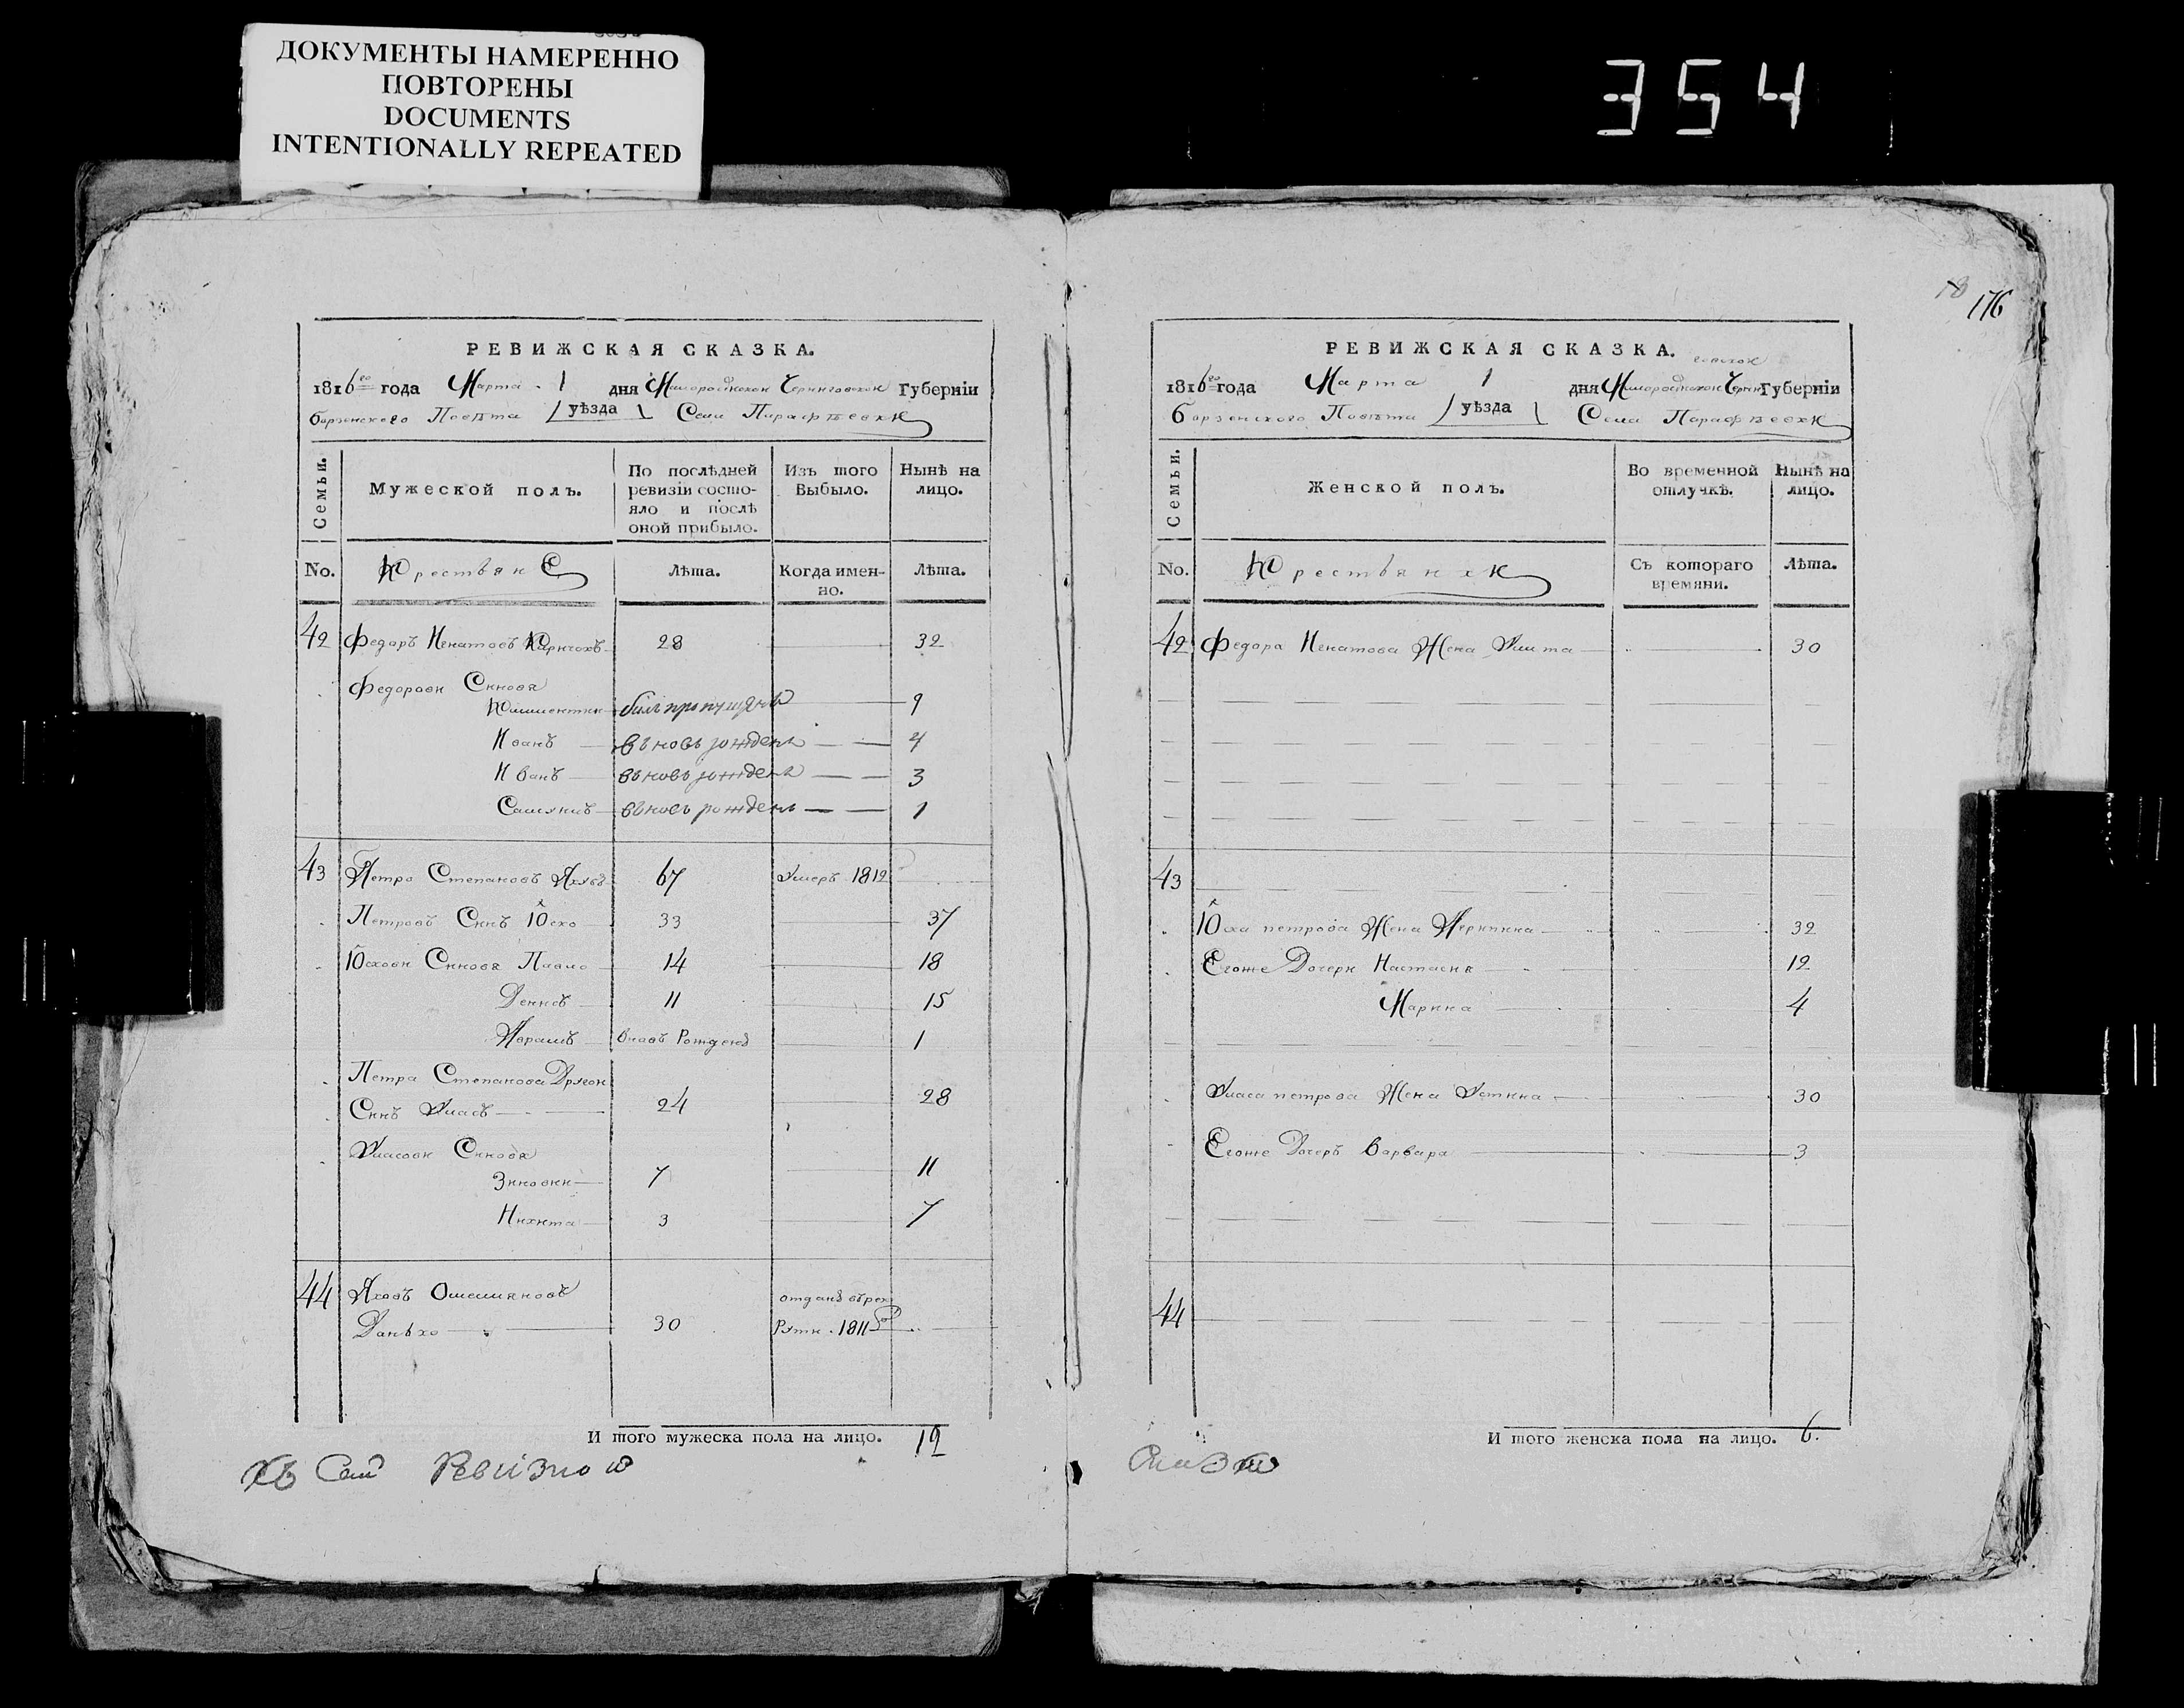 ДОКУМЕНТЫ НАМЕРЕННО
ПОВТОРЕНЫ
DOCUMENTS
INTENTIONALLY REPEATED
354
РЕВИЖСКАЯ СКАЗКА.
1816го года Марта 1 дня Малоросійской Черниговской Губерніи
Борзенского Повѣта уѣзда Села Парафѣевки
Семьи.
Мужеской полъ.
По послѣдней ревизіи состояло и послѣ оной прибыло.
Изъ того Выбыло.
Нынѣ на лицо.
No.
Крестьяне
Лѣта.
Когда именно.
Лѣта.
42 Федоръ Игнатовъ 28 32
Федорови Синовя
былъ пропущенъ 9
Иванъ вновь рожденъ 4
Иванъ вновь рожденъ 3
вновь рожденъ 1
43 Петро Степановъ 67 Умеръ 1812
Петровъ Синъ Юско 33 37
Юскови Синовя Павло 14 18
Денисъ 11 15
Аврамъ вновь Рожденъ 1
Петра Степанова Другой
Синъ Уласъ 24 28
Уласови Синовя
Зиновии 7 11
Никита 3 7
44 Яковъ Омеляновъ отданъ врек
Данько 30 Рути 1811
И того мужеска пола на лицо. 12
Ревизкою
176
РЕВИЖСКАЯ СКАЗКА.
1816го года Марта 1 дня Малоросійской Черниговской Губерніи
Борзенского Повѣта уѣзда Села Парафѣевки
Семьи.
Женской полъ.
Во временной отлучкѣ.
Нынѣ на лицо.
No.
Крестьянки
Съ котораго времяни.
Лѣта.
42 Федора Игнатова Жена Улита 30
43
Юска петрова Жена 32
Егоже Дочери Настасия 12
Марина 4
Уласа петрова Жена Устина 30
Егоже Дочеръ Варвара 3
44
И того женска пола на лицо. 6.